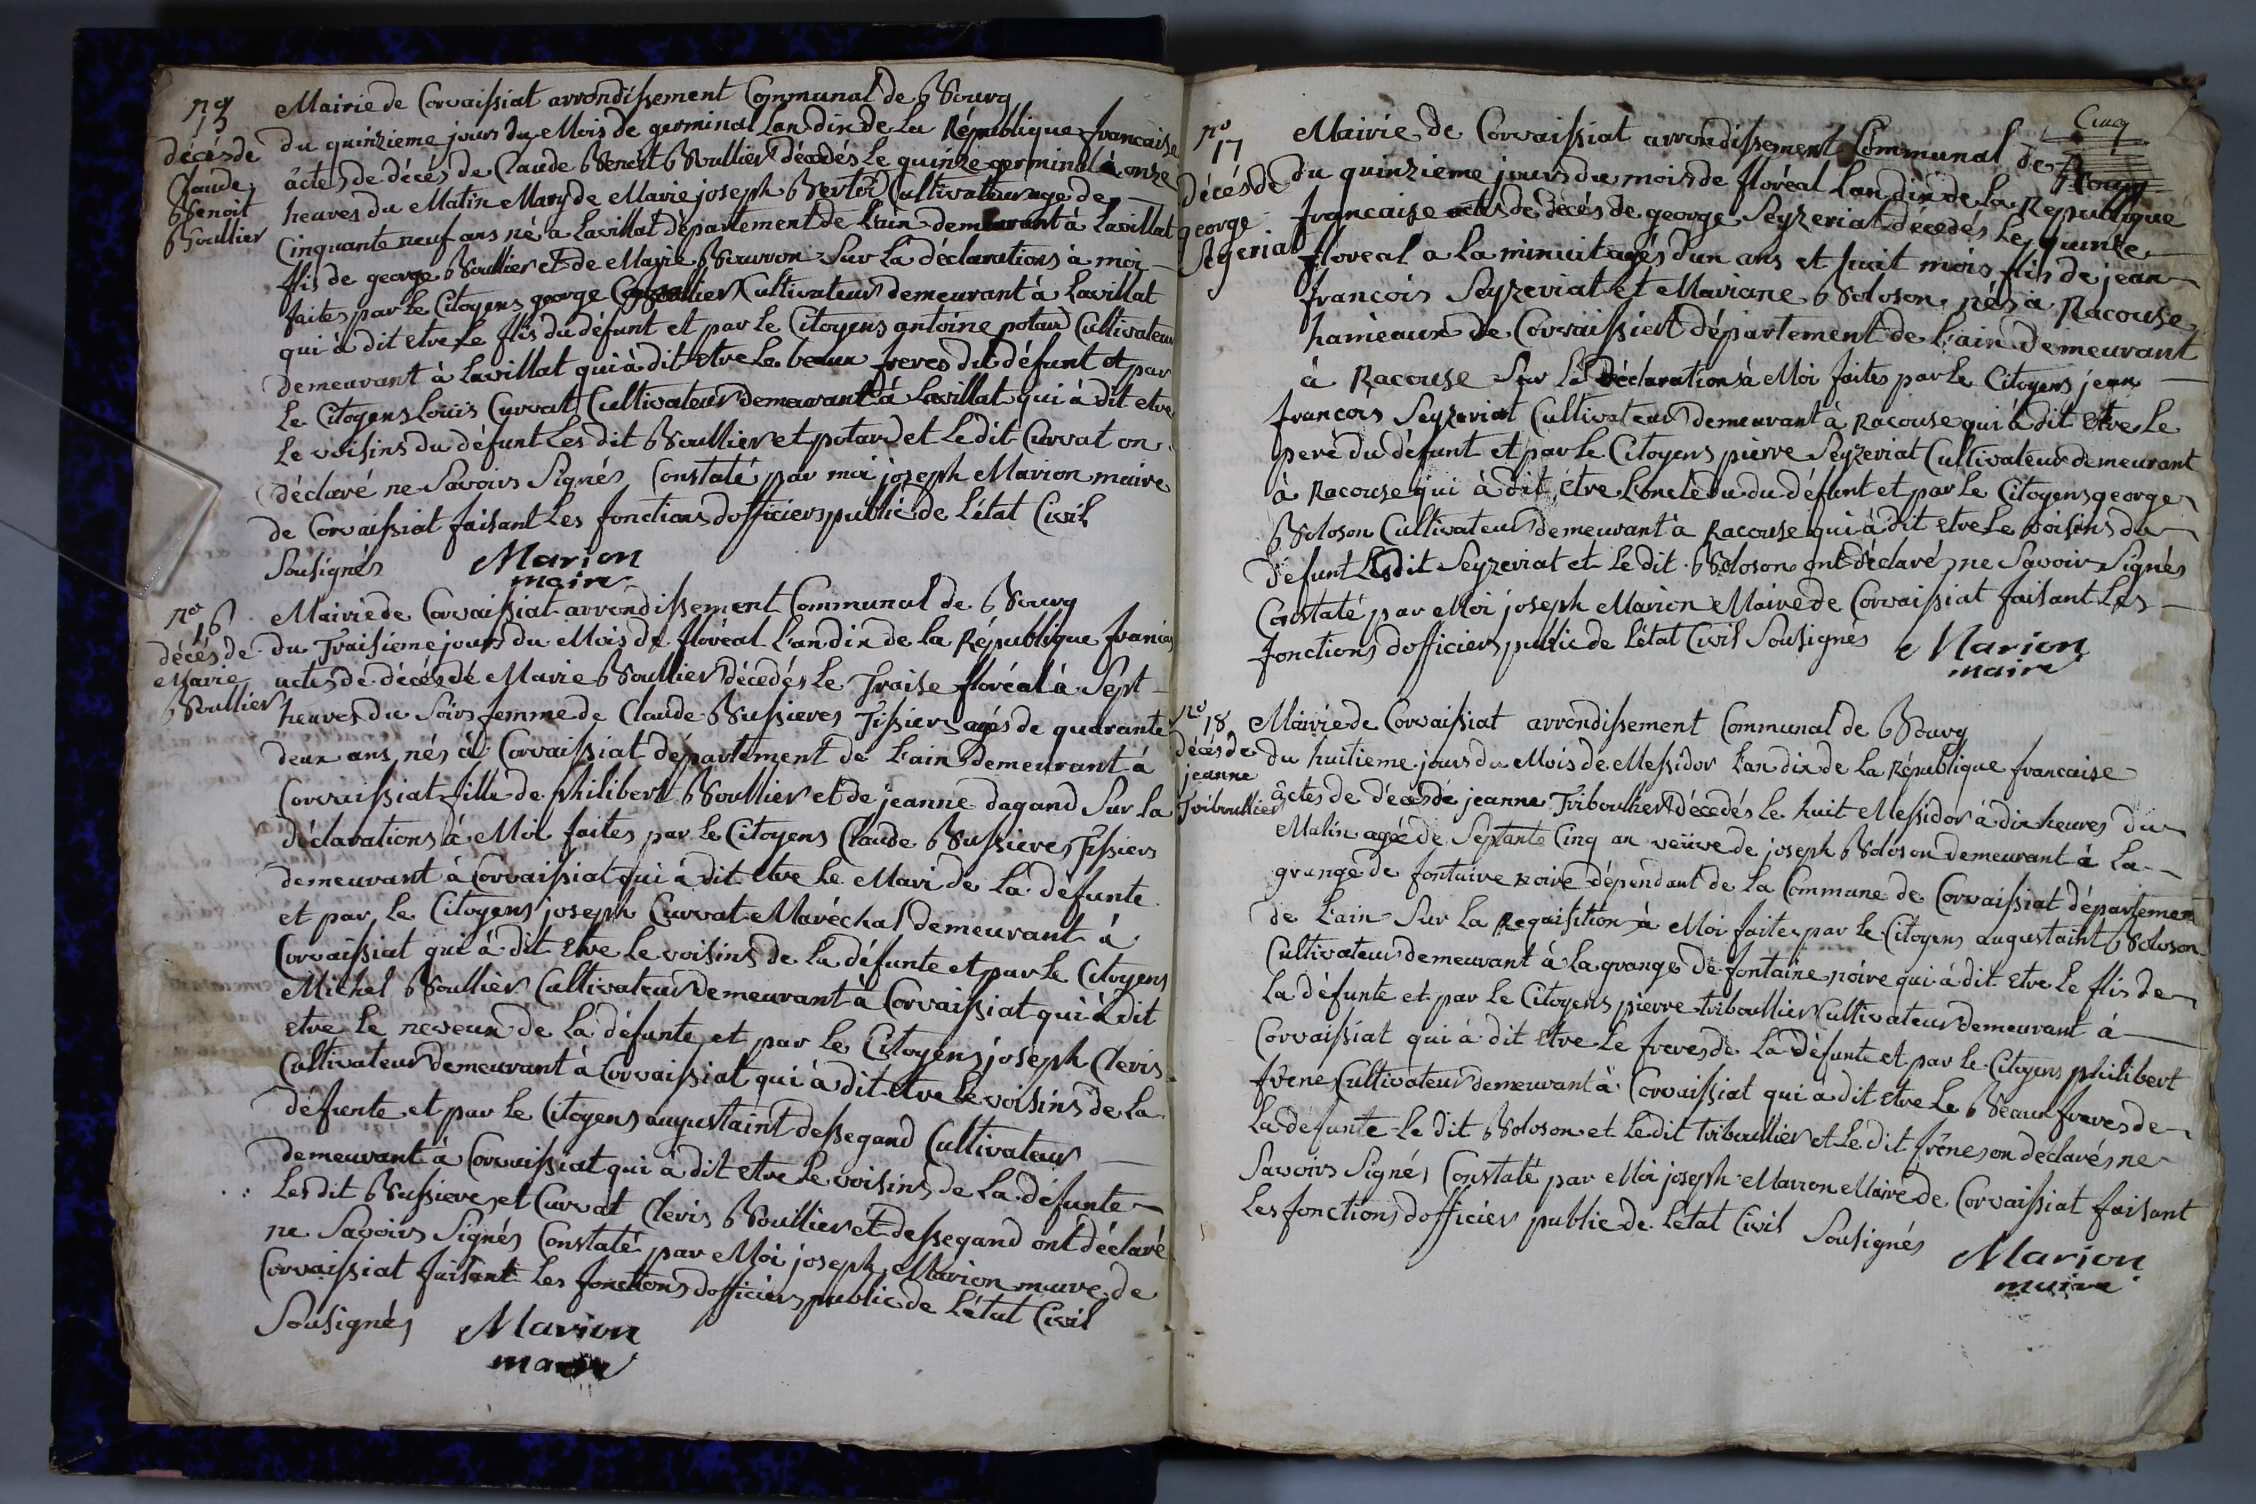 no
15
décés de
Claude
Benoit
Boullier
Mairie de Corvaissiat arrondissement Communal de Bourg
du quinzieme jours du Mois de germinal Lan dix de La République francaise
âctes de décés de Claude Benoit Boullier décedés Le quinze germinal à onze
heures du Matin Mary de Marie joseph Bertoz Cultivateur age de
Cinquante neuf ans né à Lavillat département de L'ain demeurant à Lavillat
ffis de george Boullier et de Marie Bouvron Sur La déclarations à moi
faites par Le Citoyens george Boullier Cultivateur demeurant à Lavillat
qui à dit etre Le flis du défunt et par Le Citoyens antoine potard Cultivateur
demeurant à Lavillat qui à dit etre Le beaux freres du défunt et par
Le Citoyens Louis Curvat Cultivateur demeurant à Lavillat qui à dit etre
Le voisins du défunt Les dit Boullier et potard et Le dit Curvat on
déclaré ne Savoirs Signés Constaté par moi joseph Marion maire
de Corvaissiat faisant Les fonctions dofficiers public de L'état Civil
Sousignés Marion
maire
no
16
décés de
Marie
Boullier
Mairie de Corvaissiat arrondissement Communal de Bourg
du Traisieme jours du Mois de floréal Lan dix de la République francais
actes de décés de Marie Boullier décedés Le Traise floréal à Sept
heures du Soirs femme de Claude Bussieres Tissiers agés de quarante
deux ans nés à Corvaissiat département de L'ain demeurant à
Corvaissiat fille de philibert Boullier et de jeanne dagand Sur La
déclarations à Moi faites par Le Citoyens Claude Bussieres Tissiers
demeurant à Corvaissiat qui à dit etre Le Mari de La défunte
et par Le Citoyens joseph Curvat Maréchal demeurant à
Corvaissiat qui à dit Etre Le voisins de La défunte et par Le Citoyens
Michel Boullier Cultivateur demeurant à Corvaissiat qui à dit
etre Le neveux de La défunte et par Le Citoyens joseph Clevis
Cultivateur demeurant à Corvaissiat qui à dit etre Le voisins de La
défunte et par Le Citoyens augustaint dessegand Cultivateur
demeurant à Corvaissiat qui à dit etre Le voisins de La défunte
Les dit Bussieres et Curvat Clevis Boullier et dessegand ont déclaré
ne Savoirs Signés Constaté par Moi joseph Marion maire de
Corvaissiat faisant Les fonctions dofficiers public de L'état Civil
Sousignés Marion
maire
Cinq
no
17
décés de
george
Séyeriat
Mairie de Corvaissiat arrondissement Communal de Bourg
du quinzieme jours du mois de floréal Lan dix de La République
francaise actes de décés de george Seyzeriat décedés Le quinze
floreal a La minuit agés dun ans et huit mois flis de jean
francois Seyzeriat et Mariane Boloson nés à Racouse
hameaux de Corvaissiat département de L'ain demeurant
à Racouse Sur La déclarations à Moi faites par Le Citoyens jean
francois Seyzeriat Cultivateur demeurant à Racouse qui à dit etre Le
pere du défunt et par Le Citoyens pierre Seyzeriat Cultivateur demeurant
à Racouse qui à dit etre Loncle du du défunt et par Le Citoyens george
Boloson Cultivateur demeurant à Racouse qui à dit etre Le voisins du
défunt Les dit Seyzeriat et Le dit Boloson ont déclaré ne Savoir Signés
Constaté par Moi joseph Marion Maire de Corvaissiat faisant Les
fonctions dofficiers public de Létat Civil Sousignés Marion
maire
no
18
décés de
jeanne
Triboullier
Mairie de Corvaissiat arrondissement Communal de Bourg
du huitieme jours du Mois de Messidor Lan dix de la République francaise
âctes de décés de jeanne Triboullier décedés Le huit Messidor à dix heures du
Matin agée de Septante Cinq an veuve de joseph Boloson demeurant à La
grange de fontaine noire dépendant de La Commune de Corvaissiat département
de L'ain Sur La Requisition à Moi faites par Le Citoyens augustaint Boloson
Cultivateur demeurant à La grange de fontaine noire qui à dit Etre Le flis de
La défunte et par Le Citoyens pierre triboullier Cultivateur demeurant à
Corvaissiat qui à dit etre Le freres de La défunte et par Le Citoyens philibert
frêne Cultivateur demeurant à Corvaissiat qui à dit etre Le Beaux freres de
La défunte Le dit Boloson et Le dit triboullier et Le dit frêne on déclarés ne
Savoirs Signés Constaté par Moi joseph Marion Maire de Corvaissiat faisant
Les fonctions dofficier public de Létat Civil Sousignés Marion
maire